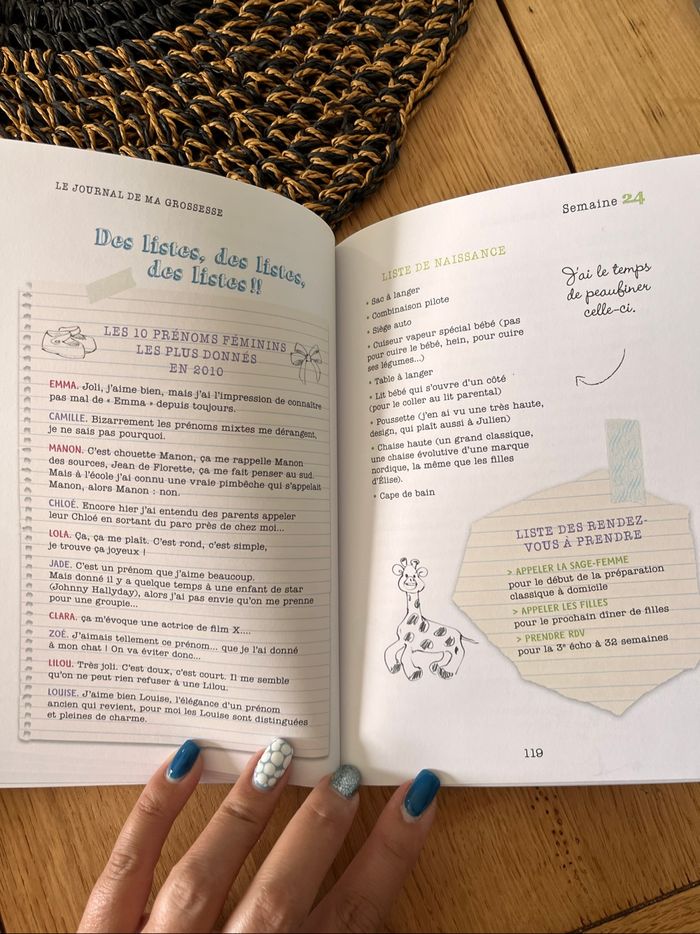 LE JOURNAL DE MA GROSSESSE
Des listes, des listes,
des listes !!
LES 10 PRÉNOMS FÉMININS
LES PLUS DONNÉS
EN 2010
EMMA. Joli, j'aime bien, mais j'ai l'impression de connaître
pas mal de « Emma » depuis toujours.
CAMILLE. Bizarrement les prénoms mixtes me dérangent,
je ne sais pas pourquoi.
MANON. C'est chouette Manon, ça me rappelle Manon
des sources, Jean de Florette, ça me fait penser au sud.
Mais à l'école j'ai connu une vraie pimbêche qui s'appelait
Manon, alors Manon : non.
CHLOÉ. Encore hier j'ai entendu des parents appeler
leur Chloé en sortant du parc près de chez moi...
LOLA. Ça, ça me plaît. C'est rond, c'est simple,
je trouve ça joyeux !
JADE. C'est un prénom que j'aime beaucoup.
Mais donné il y a quelque temps à une enfant de star
(Johnny Hallyday), alors j'ai pas envie qu'on me prenne
pour une groupie...
CLARA. ça m'évoque une actrice de film X....
ZOÉ. J'aimais tellement ce prénom... que je l'ai donné
à mon chat ! On va éviter donc...
LILOU. Très joli. C'est doux, c'est court. Il me semble
qu'on ne peut rien refuser à une Lilou.
LOUISE. J'aime bien Louise, l'élégance d'un prénom
ancien qui revient, pour moi les Louise sont distinguées
et pleines de charme.
Semaine 24
LISTE DE NAISSANCE
• Sac à langer
• Combinaison pilote
• Siège auto
• Cuiseur vapeur spécial bébé (pas
pour cuire le bébé, hein, pour cuire
ses légumes...)
• Table à langer
• Lit bébé qui s'ouvre d'un côté
(pour le coller au lit parental)
• Poussette (j'en ai vu une très haute,
design, qui plaît aussi à Julien)
• Chaise haute (un grand classique,
une chaise évolutive d'une marque
nordique, la même que les filles
d'Élise).
• Cape de bain
J'ai le temps
de peaufiner
celle-ci.
LISTE DES RENDEZ-
VOUS À PRENDRE
> APPELER LA SAGE-FEMME
pour le début de la préparation
classique à domicile
> APPELER LES FILLES
pour le prochain dîner de filles
> PRENDRE RDV
pour la 3e écho à 32 semaines
119